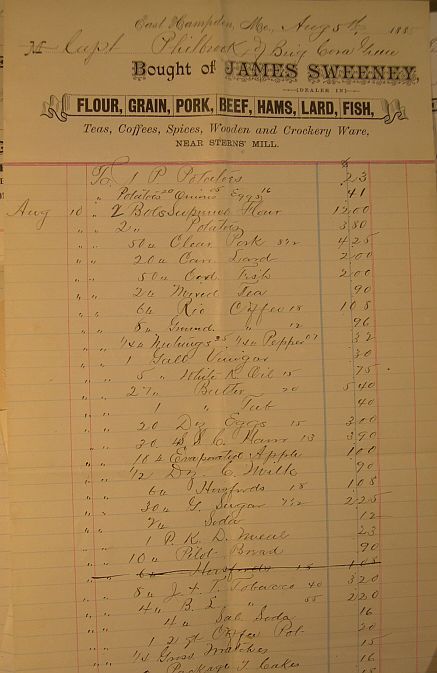 East Hampden, Me., Aug 5th 188
M Capt Philbrook, of Brig Cora Green
Bought of JAMES SWEENEY,
DEALER IN
FLOUR, GRAIN, PORK, BEEF, HAMS, LARD, FISH,
Teas, Coffees, Spices, Wooden and Crockery Ware,
NEAR STERNS' MILL.
To 1 P Potatoes 23
" Potatoes 20 Onions 05 Eggs 16 41
Aug 10 " 2 Bbls Flour 1200
" " 2 " Potatoes 380
" " 50 " Clear Pork 8½ 425
" " 20 " Can Lard 200
" " 50 " Cod Fish 200
" " 2 " Mixed Tea 90
" " 6 " Rio Coffee 18 108
" " 8 " Ground " 12 96
" " ¼ " Nutmegs 25 ¼ " Pepper 07 32
" " 1 Gall Vinegar 30
" " 5 " White K Oil 15 75
" " 27 " Butter 20 540
" " 1 " Tub 40
" " 20 Dz Eggs 15 300
" " 30 Ham 13 390
" " 10 " Evaporated Apple 100
" " ½ Dz C. Milk 90
" " 6 " Horsfords 18 108
" " 30 " G. Sugar 7½ 225
" " Soda 12
" " 1 P K D. Meal 23
" " 10 " Pilot Bread 90
" " 6 " Horsfords 18 108
" " 8 " J. & T. Tobacco 40 320
" " 4 " B. L. " 55 220
" " 4 " Sal Soda 16
" " 1 2 qt Coffee Pot 20
" " ¼ Gross Matches 15
" " Package Y Cakes 16